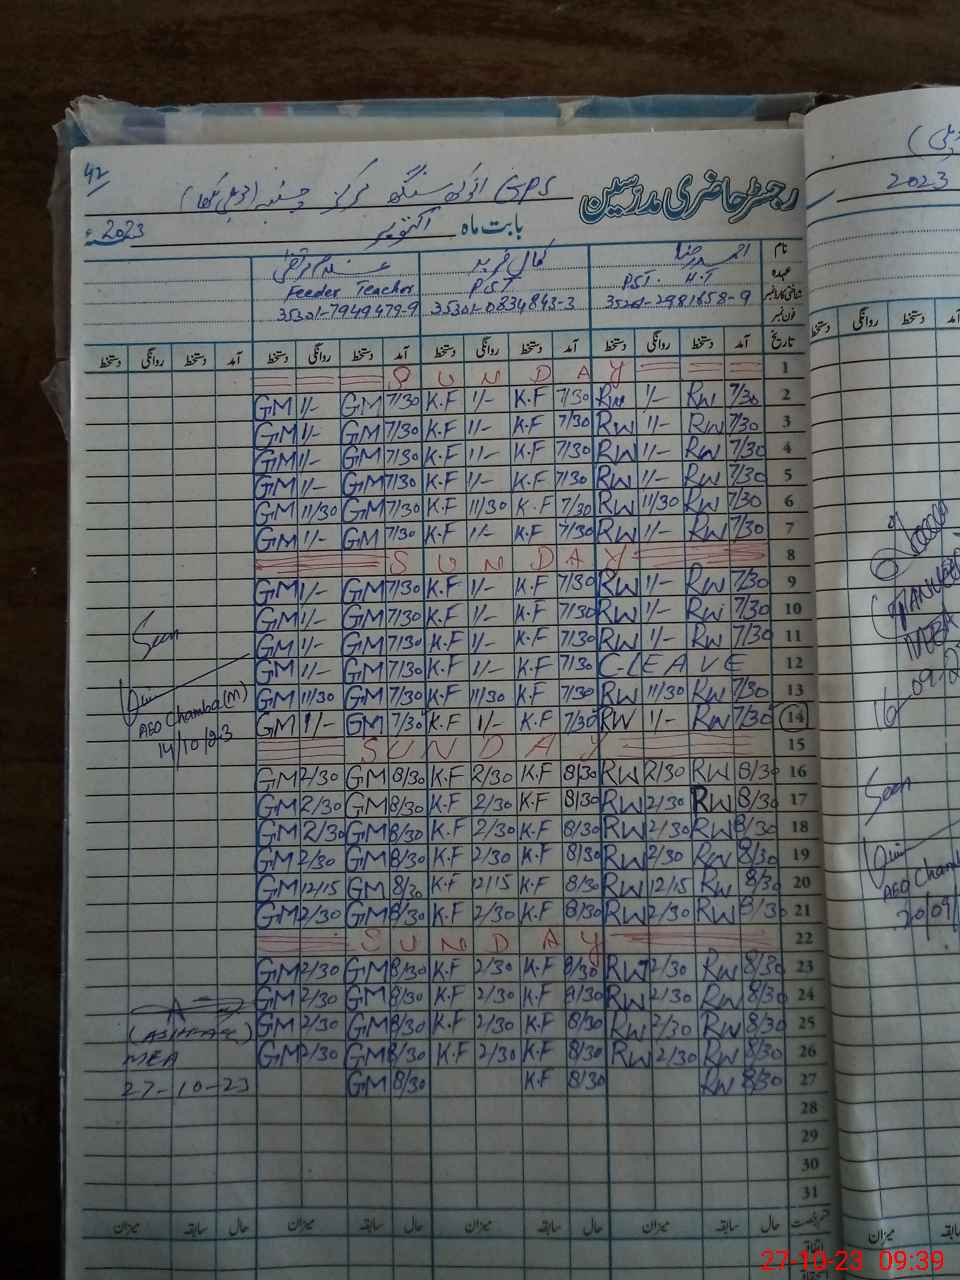 42
GPS
رجسٹر حاضری مدرسین
بابت ماہ اکتوبر 2023ء
نام
عہدہ
شناختی کارڈ نمبر
فون نمبر
Feeder Teacher PST PST. H.T
35301-7949479-9 35301-0834843-3 35201-2981658-9
دستخط روانگی دستخط آمد دستخط روانگی دستخط آمد دستخط روانگی دستخط آمد دستخط روانگی دستخط آمد تاریخ
SUNDAY 1
GM 1/- GM 7/30 K.F 1/- K.F 7/30 RW 1/- RW 7/30 2
GM 1/- GM 7/30 K.F 1/- K.F 7/30 RW 1/- RW 7/30 3
GM 1/- GM 7/30 K.F 1/- K.F 7/30 RW 1/- RW 7/30 4
GM 1/- GM 7/30 K.F 1/- K.F 7/30 RW 1/- RW 7/30 5
GM 11/30 GM 7/30 K.F 11/30 K.F 7/30 RW 11/30 RW 7/30 6
GM 1/- GM 7/30 K.F 1/- K.F 7/30 RW 1/- RW 7/30 7
SUNDAY 8
GM 1/- GM 7/30 K.F 1/- K.F 7/30 RW 1/- RW 7/30 9
GM 1/- GM 7/30 K.F 1/- K.F 7/30 RW 1/- RW 7/30 10
GM 1/- GM 7/30 K.F 1/- K.F 7/30 RW 1/- RW 7/30 11
GM 1/- GM 7/30 K.F 1/- K.F 7/30 C-LEAVE 12
GM 11/30 GM 7/30 K.F 11/30 K.F 7/30 RW 11/30 RW 7/30 13
GM 1/- GM 7/30 K.F 1/- K.F 7/30 RW 1/- RW 7/30 14
SUNDAY 15
GM 2/30 GM 8/30 K.F 2/30 K.F 8/30 RW 2/30 RW 8/30 16
GM 2/30 GM 8/30 K.F 2/30 K.F 8/30 RW 2/30 RW 8/30 17
GM 2/30 GM 8/30 K.F 2/30 K.F 8/30 RW 2/30 RW 8/30 18
GM 2/30 GM 8/30 K.F 2/30 K.F 8/30 RW 2/30 RW 8/30 19
GM 12/15 GM 8/30 K.F 12/15 K.F 8/30 RW 12/15 RW 8/30 20
GM 2/30 GM 8/30 K.F 2/30 K.F 8/30 RW 2/30 RW 8/30 21
SUNDAY 22
GM 2/30 GM 8/30 K.F 2/30 K.F 8/30 RW 2/30 RW 8/30 23
GM 2/30 GM 8/30 K.F 2/30 K.F 8/30 RW 2/30 RW 8/30 24
GM 2/30 GM 8/30 K.F 2/30 K.F 8/30 RW 2/30 RW 8/30 25
GM 2/30 GM 8/30 K.F 2/30 K.F 8/30 RW 2/30 RW 8/30 26
GM 8/30 K.F 8/30 RW 8/30 27
28
29
30
31
میزان سابقہ حال میزان سابقہ حال میزان سابقہ حال میزان سابقہ حال
Seen
AEO Chamba (M)
14/10/23
MEA
27-10-23
2023
روانگی دستخط
MEA
Seen
AEO
20/09/
میزان سابقہ
27-10-23 09:39